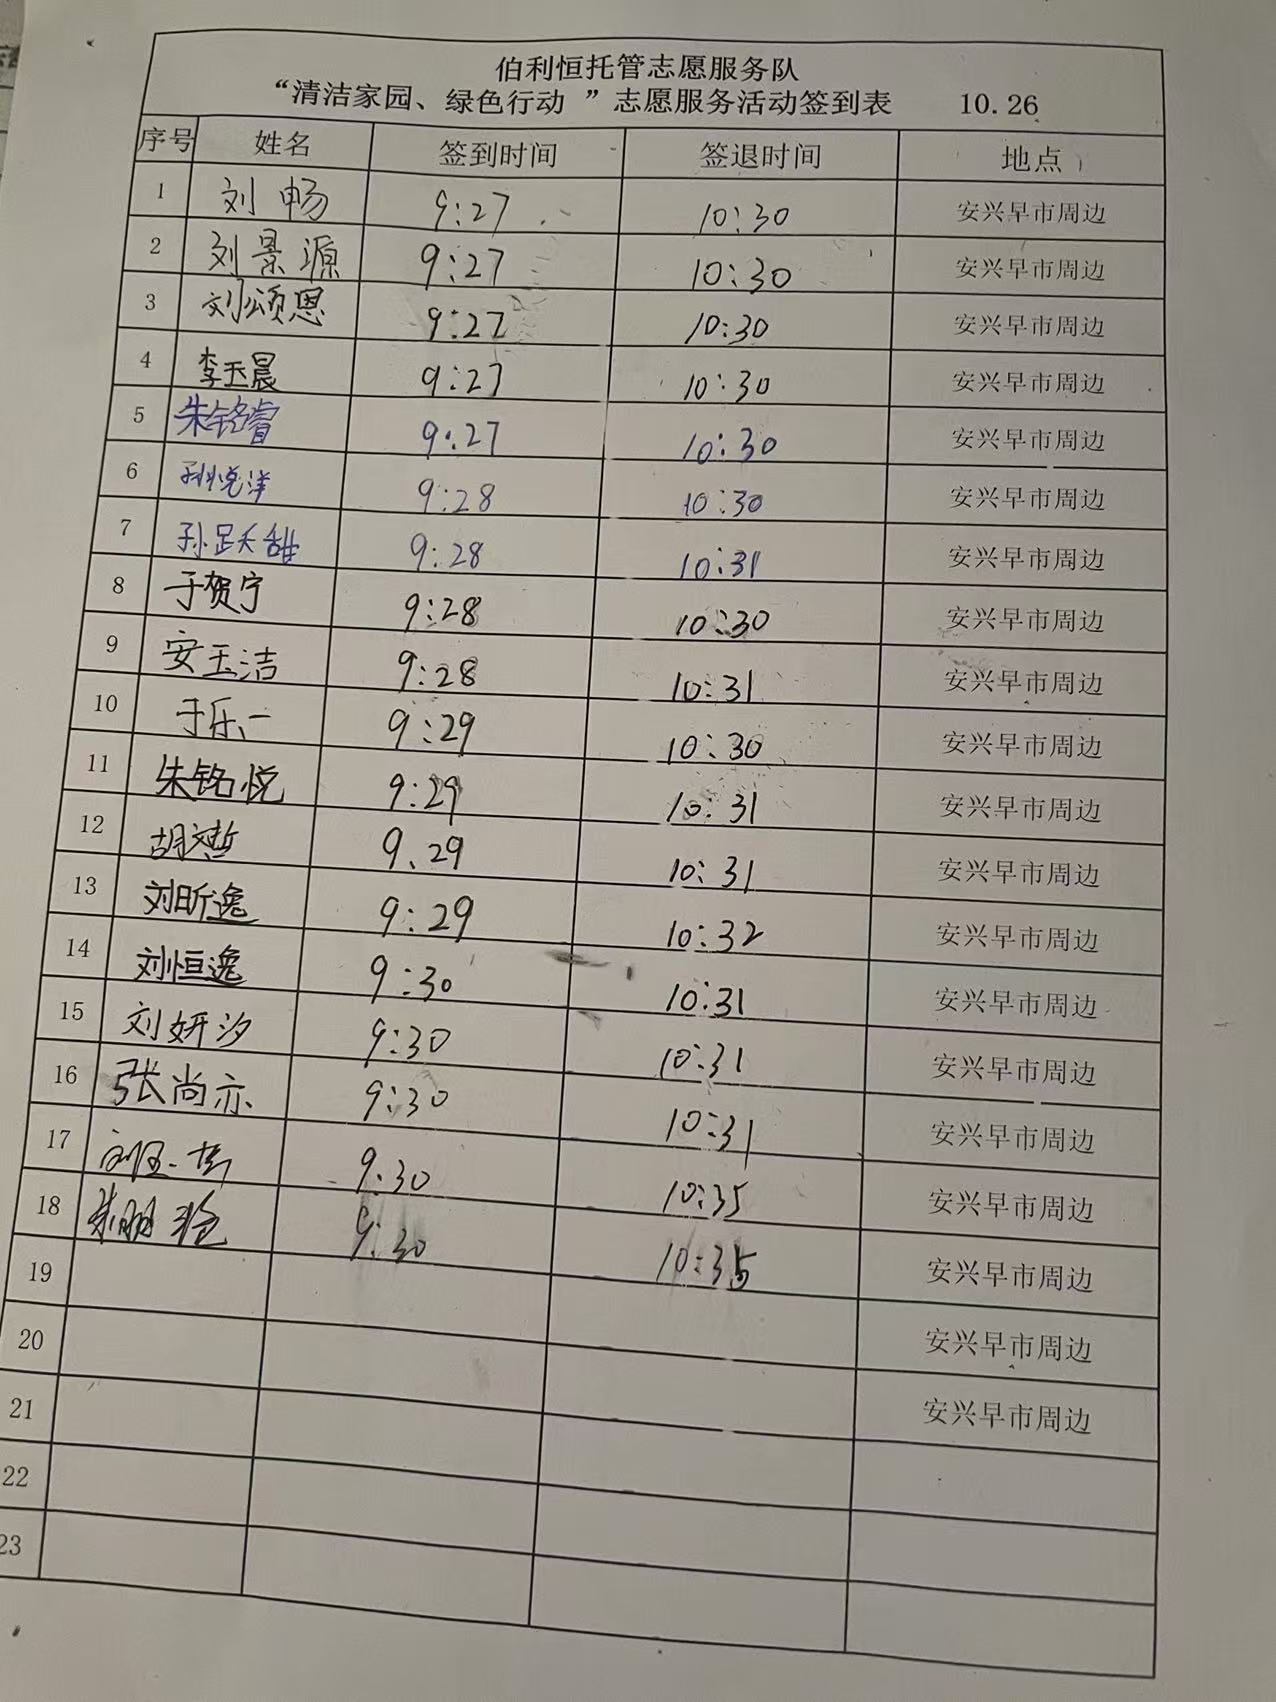 伯利恒托管志愿服务队
“清洁家园、绿色行动 ”志愿服务活动签到表 10.26
序号 姓名 签到时间 签退时间 地点
1 刘畅 9:27 10:30 安兴早市周边
2 刘景源 9:27 10:30 安兴早市周边
3 刘颂恩 9:27 10:30 安兴早市周边
4 李玉晨 9:27 10:30 安兴早市周边
5 朱铭睿 9:27 10:30 安兴早市周边
6 孙悦洋 9:28 10:30 安兴早市周边
7 孙跃甜 9:28 10:31 安兴早市周边
8 于贺宁 9:28 10:30 安兴早市周边
9 安玉洁 9:28 10:31 安兴早市周边
10 于乐一 9:29 10:30 安兴早市周边
11 朱铭悦 9:29 10:31 安兴早市周边
12 胡文哲 9:29 10:31 安兴早市周边
13 刘昕逸 9:29 10:32 安兴早市周边
14 刘恒逸 9:30 10:31 安兴早市周边
15 刘妍汐 9:30 10:31 安兴早市周边
16 张尚亦 9:30 10:31 安兴早市周边
17 9:30 10:35 安兴早市周边
18 9:30 10:35 安兴早市周边
19 安兴早市周边
20 安兴早市周边
21 安兴早市周边
22
23